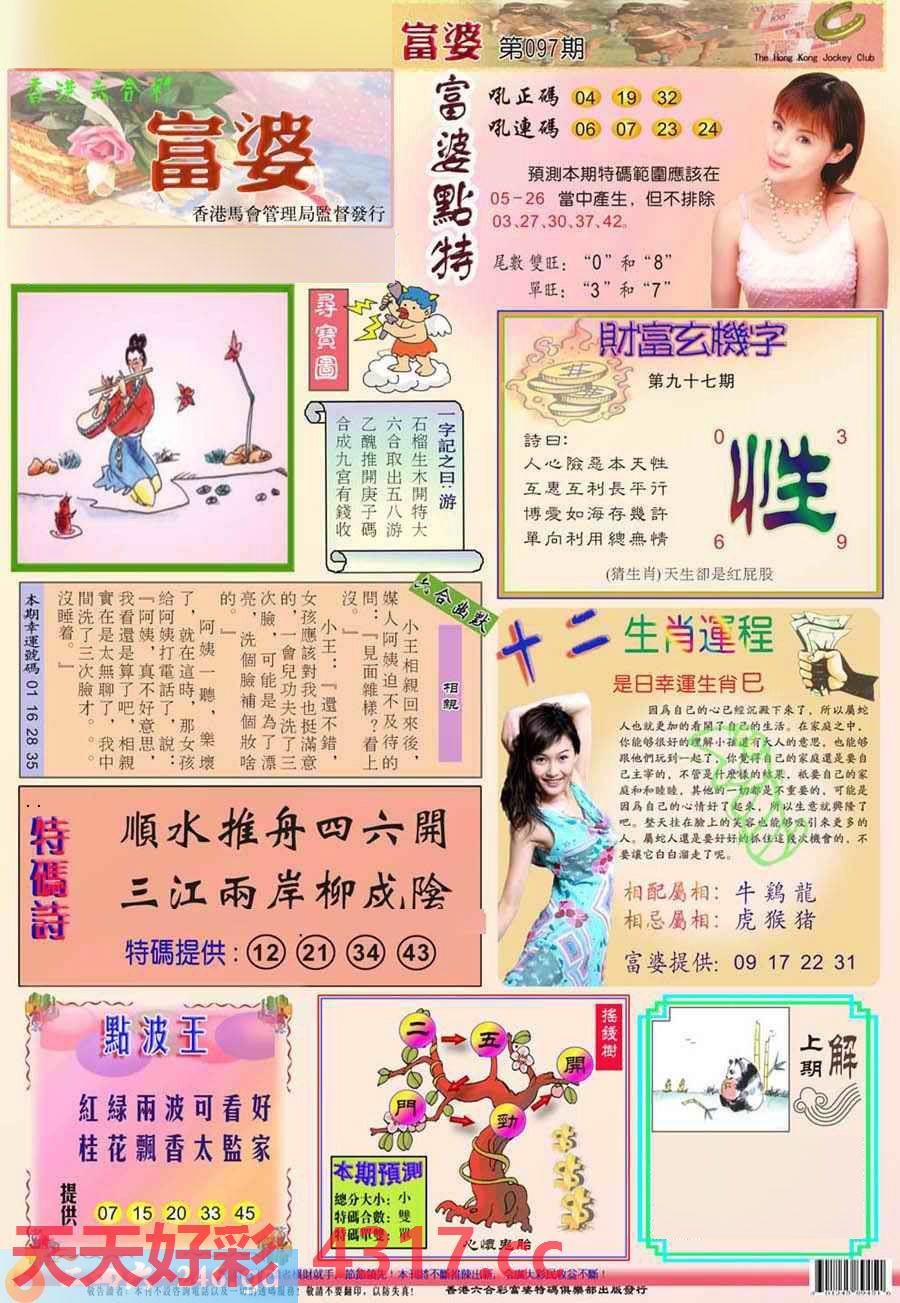 富婆 第097期
The Hong Kong Jockey Club
香港六合彩
富婆
香港馬會管理局監督發行
富婆點特
吼正碼 04 19 32
吼連碼 06 07 23 24
預測本期特碼範圍應該在
05-26 當中產生，但不排除
03,27,30,37,42。
尾數雙旺：“0”和“8”
單旺：“3”和“7”
尋寶圖
一字記之曰：游
石榴生木開特大
六合取出五八游
乙醜推開庚子碼
合成九宮有錢收
財富玄機字
第九十七期
詩曰：
人心險惡本天性
互惠互利長平行
博愛如海存幾許
單向利用總無情
0 3
性
6 9
(猜生肖)天生卻是紅屁股
六合幽默
相親
小王相親回來後，
媒人阿姨迫不及待的
問：『見面雜樣？看上
沒。』
小王：『還不錯，
女孩應該對我也挺滿意
的，一會兒功夫洗了三
次臉，可能是為了漂
亮，洗個臉補個妝啥
的。』
阿姨一聽，樂壞
了，就在這時，那女孩
給阿姨打電話了，說：
『阿姨，真不好意思，
我看還是算了吧，相親
實在是太無聊了，我中
間洗了三次臉才。。
沒睡着。』
本期幸運號碼 01 16 28 35
十二生肖運程
是日幸運生肖巳
因爲自己的心已經沉澱下來了，所以屬蛇
人也就更加的看開了自己的生活。在家庭之中，
你能够很好的理解小孩還有大人的意思，也能够
跟他們玩到一起了，你覺得自己的家庭還是要自
己主宰的，不管是什麽樣的結果，祇要自己的家
庭和和睦睦，其他的一切都是不重要的，可能是
因爲自己的心情好了起來，所以生意就興隆了
吧。整天挂在臉上的笑容也能够吸引來更多的
人。屬蛇人還是要好好的抓住這幾次機會的，不
要讓它白白溜走了呢。
相配屬相：牛 鷄 龍
相忌屬相：虎 猴 猪
富婆提供：09 17 22 31
特碼詩
順水推舟四六開
三江兩岸柳成陰
特碼提供：12 21 34 43
點波王
紅緑兩波可看好
桂花飄香太監家
提供 07 15 20 33 45
搖錢樹
二 五 開
門 勁
本期預測
總分大小：小
特碼合數：雙
特碼單雙：單
心懷鬼胎
上期解
天天好彩 4317.cc
橫財就手，節節領先！本刊將不斷推陳出新，令廣大彩民收益不斷！
敬告讀者：本刊不設咨詢電話以及一切的透碼服務！敬請不要翻印，以防失真！
香港六合彩富婆特碼俱樂部出版發行